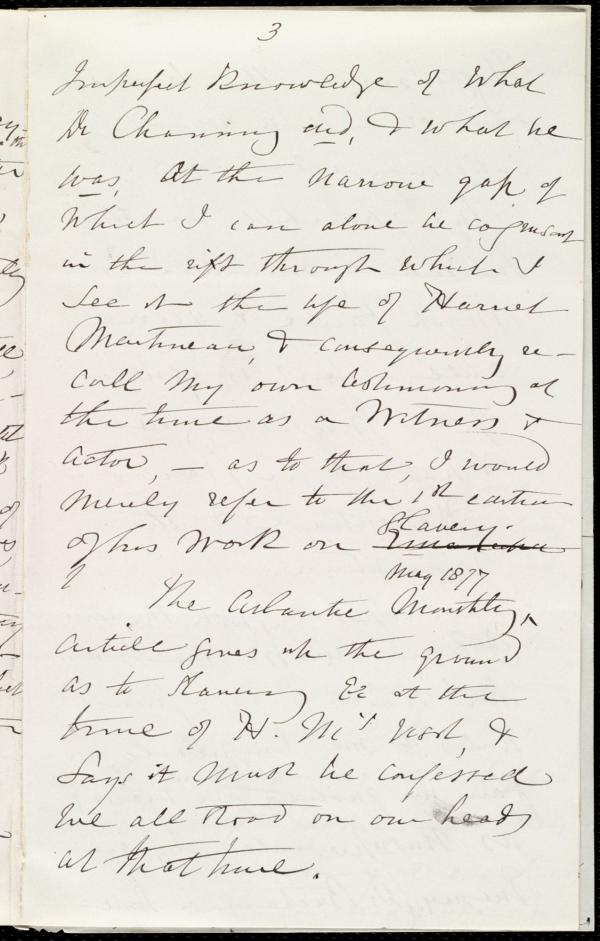 3
Imperfect Knowledge of what
Dr Channing did, & what he
was, At the narrow gap of
which I can alone be cognisant
in the rift through which I
see it the life of Harriet
Martineau, & consequently re-
call my own testimony at
the time as a Witness &
Actor, — as to that, I would
merely refer to the 1st edition
of his Work on Slavery.
May 1877
The Atlantic Monthly,
article gives up the ground
as to Slavery &c at the
time of H. M's visit, &
says it must be confessed
we all stood on our heads
at that time.